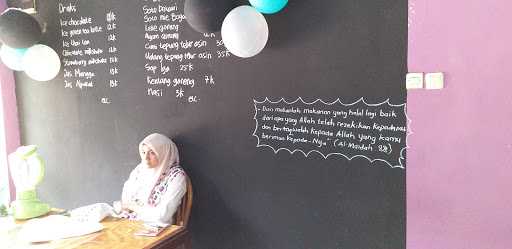 Drinks
Ice chocolate
Ice green tea latte 12k
Ice Thai tea 12k
Chocolate milkshake 12k
Strawberry milkshake 12k
Jus Mangga
Jus Alpukat 18k
etc.
Soto Betawi
Soto mie Bogor
Lele goreng
Ayam goreng
Cumi tepung telur asin 30k
Udang tepung telur asin 35k
Sop Iga 25k
Kentang goreng 7k
Nasi 5k
etc.
"Dan makanlah makanan yang halal lagi baik
dari apa yang Allah telah rezekikan kepadamu
dan bertaqwalah kepada Allah yang kamu
beriman kepada-Nya" (Al-Maidah 88)